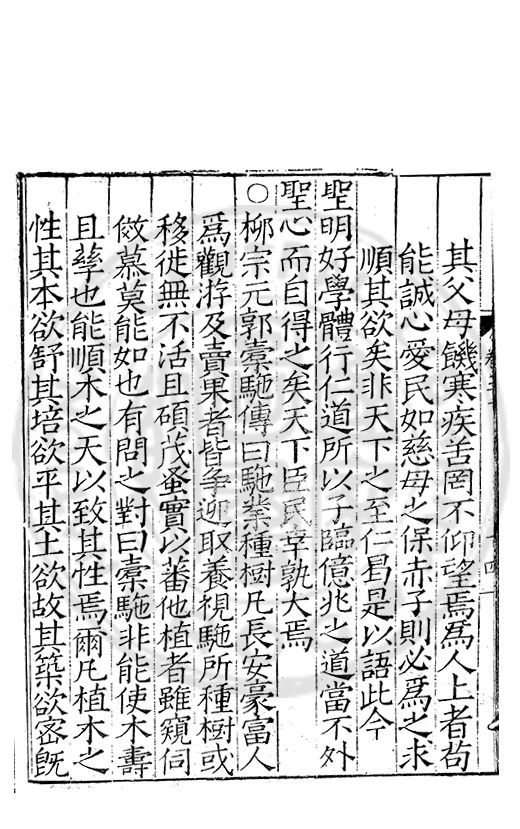 其父母饑寒疾苦罔不仰望焉爲人上者苟
能誠心愛民如慈母之保赤子則必爲之求
順其欲矣非天下之至仁曷足以語此今
聖明好學體行仁道所以子臨億兆之道當不外
聖心而自得之矣天下臣民幸孰大焉
○柳宗元郭橐駞傳曰駞業種樹凡長安豪富人
爲觀游及賣果者皆爭迎取養視駞所種樹或
移徙無不活且碩茂蚤實以蕃他植者雖窺伺
傚慕莫能如也有問之對曰橐駞非能使木壽
且孳也能順木之天以致其性焉爾凡植木之
性其本欲舒其培欲平其土欲故其築欲密旣